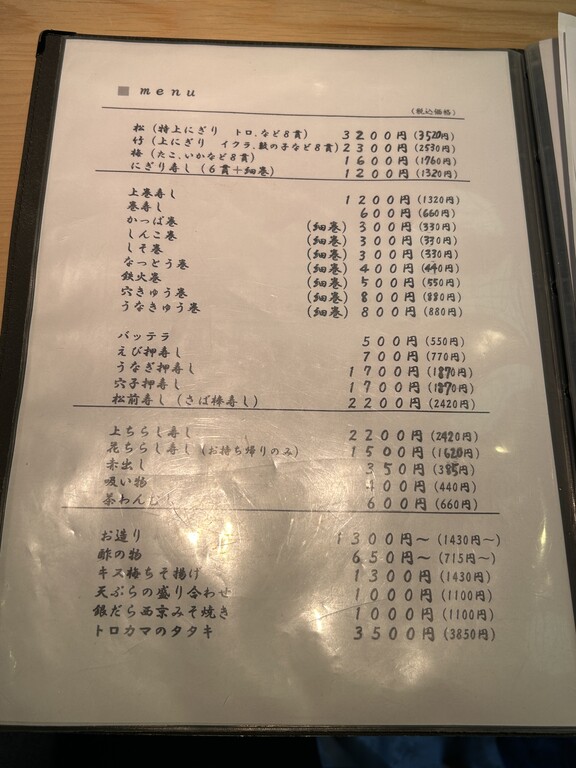 ■ menu
(税込価格)
松(特上にぎり トロ.など8貫) 3200円(3520円)
竹(上にぎり イクラ.数の子など8貫) 2300円(2530円)
梅(たこ.いかなど8貫) 1600円(1760円)
にぎり寿し(6貫+細巻) 1200円(1320円)
上巻寿し 1200円(1320円)
巻寿し 600円(660円)
かっぱ巻 (細巻) 300円(330円)
しんこ巻 (細巻) 300円(330円)
しそ巻 (細巻) 300円(330円)
なっとう巻 (細巻) 400円(440円)
鉄火巻 (細巻) 500円(550円)
穴きゅう巻 (細巻) 800円(880円)
うなきゅう巻 (細巻) 800円(880円)
バッテラ 500円(550円)
えび押寿し 700円(770円)
うなぎ押寿し 1700円(1870円)
穴子押寿し 1700円(1870円)
松前寿し(さば棒寿し) 2200円(2420円)
上ちらし寿し 2200円(2420円)
花ちらし寿し(お持ち帰りのみ) 1500円(1620円)
赤出し 350円(385円)
吸い物 400円(440円)
茶わんむし 600円(660円)
お造り 1300円~(1430円~)
酢の物 650円~(715円~)
キス梅ちそ揚げ 1300円(1430円)
天ぷらの盛り合わせ 1000円(1100円)
銀だら西京みそ焼き 1000円(1100円)
トロカマのタタキ 3500円(3850円)